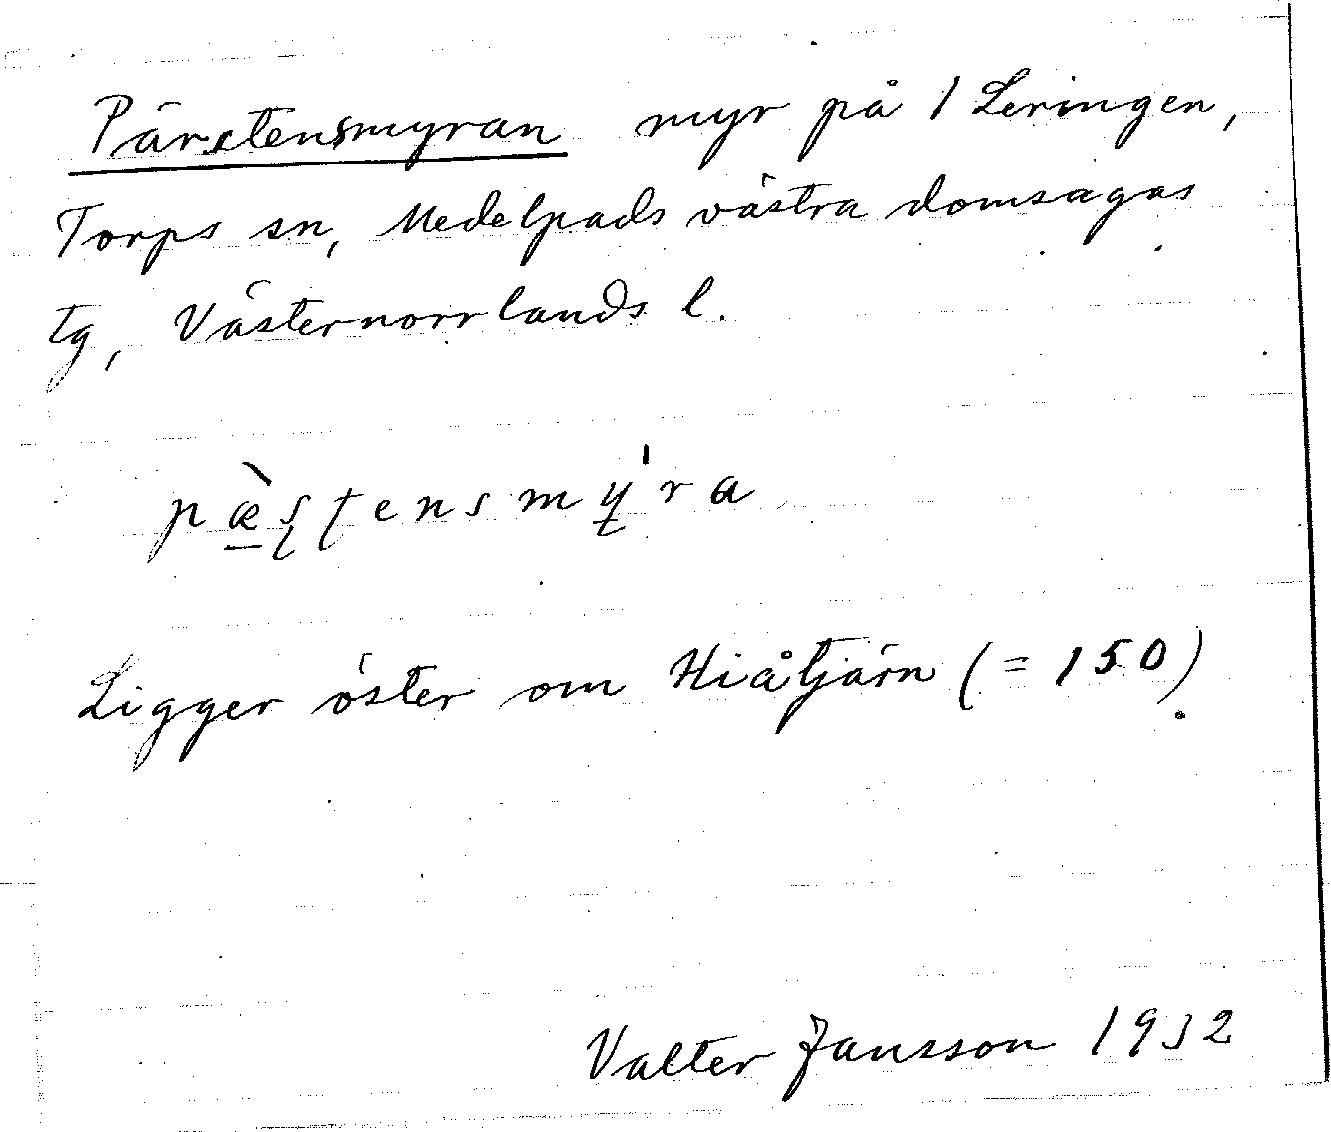 Pärstensmyran myr på 1 Leringen,
Torps sn, Medelpads västra domsagas
tg, Västernorrlands l.
pæ̀ʂʈensmy̱ˈra
Ligger öster om Hiåtjärn (= 150).
Valter Jansson 1932